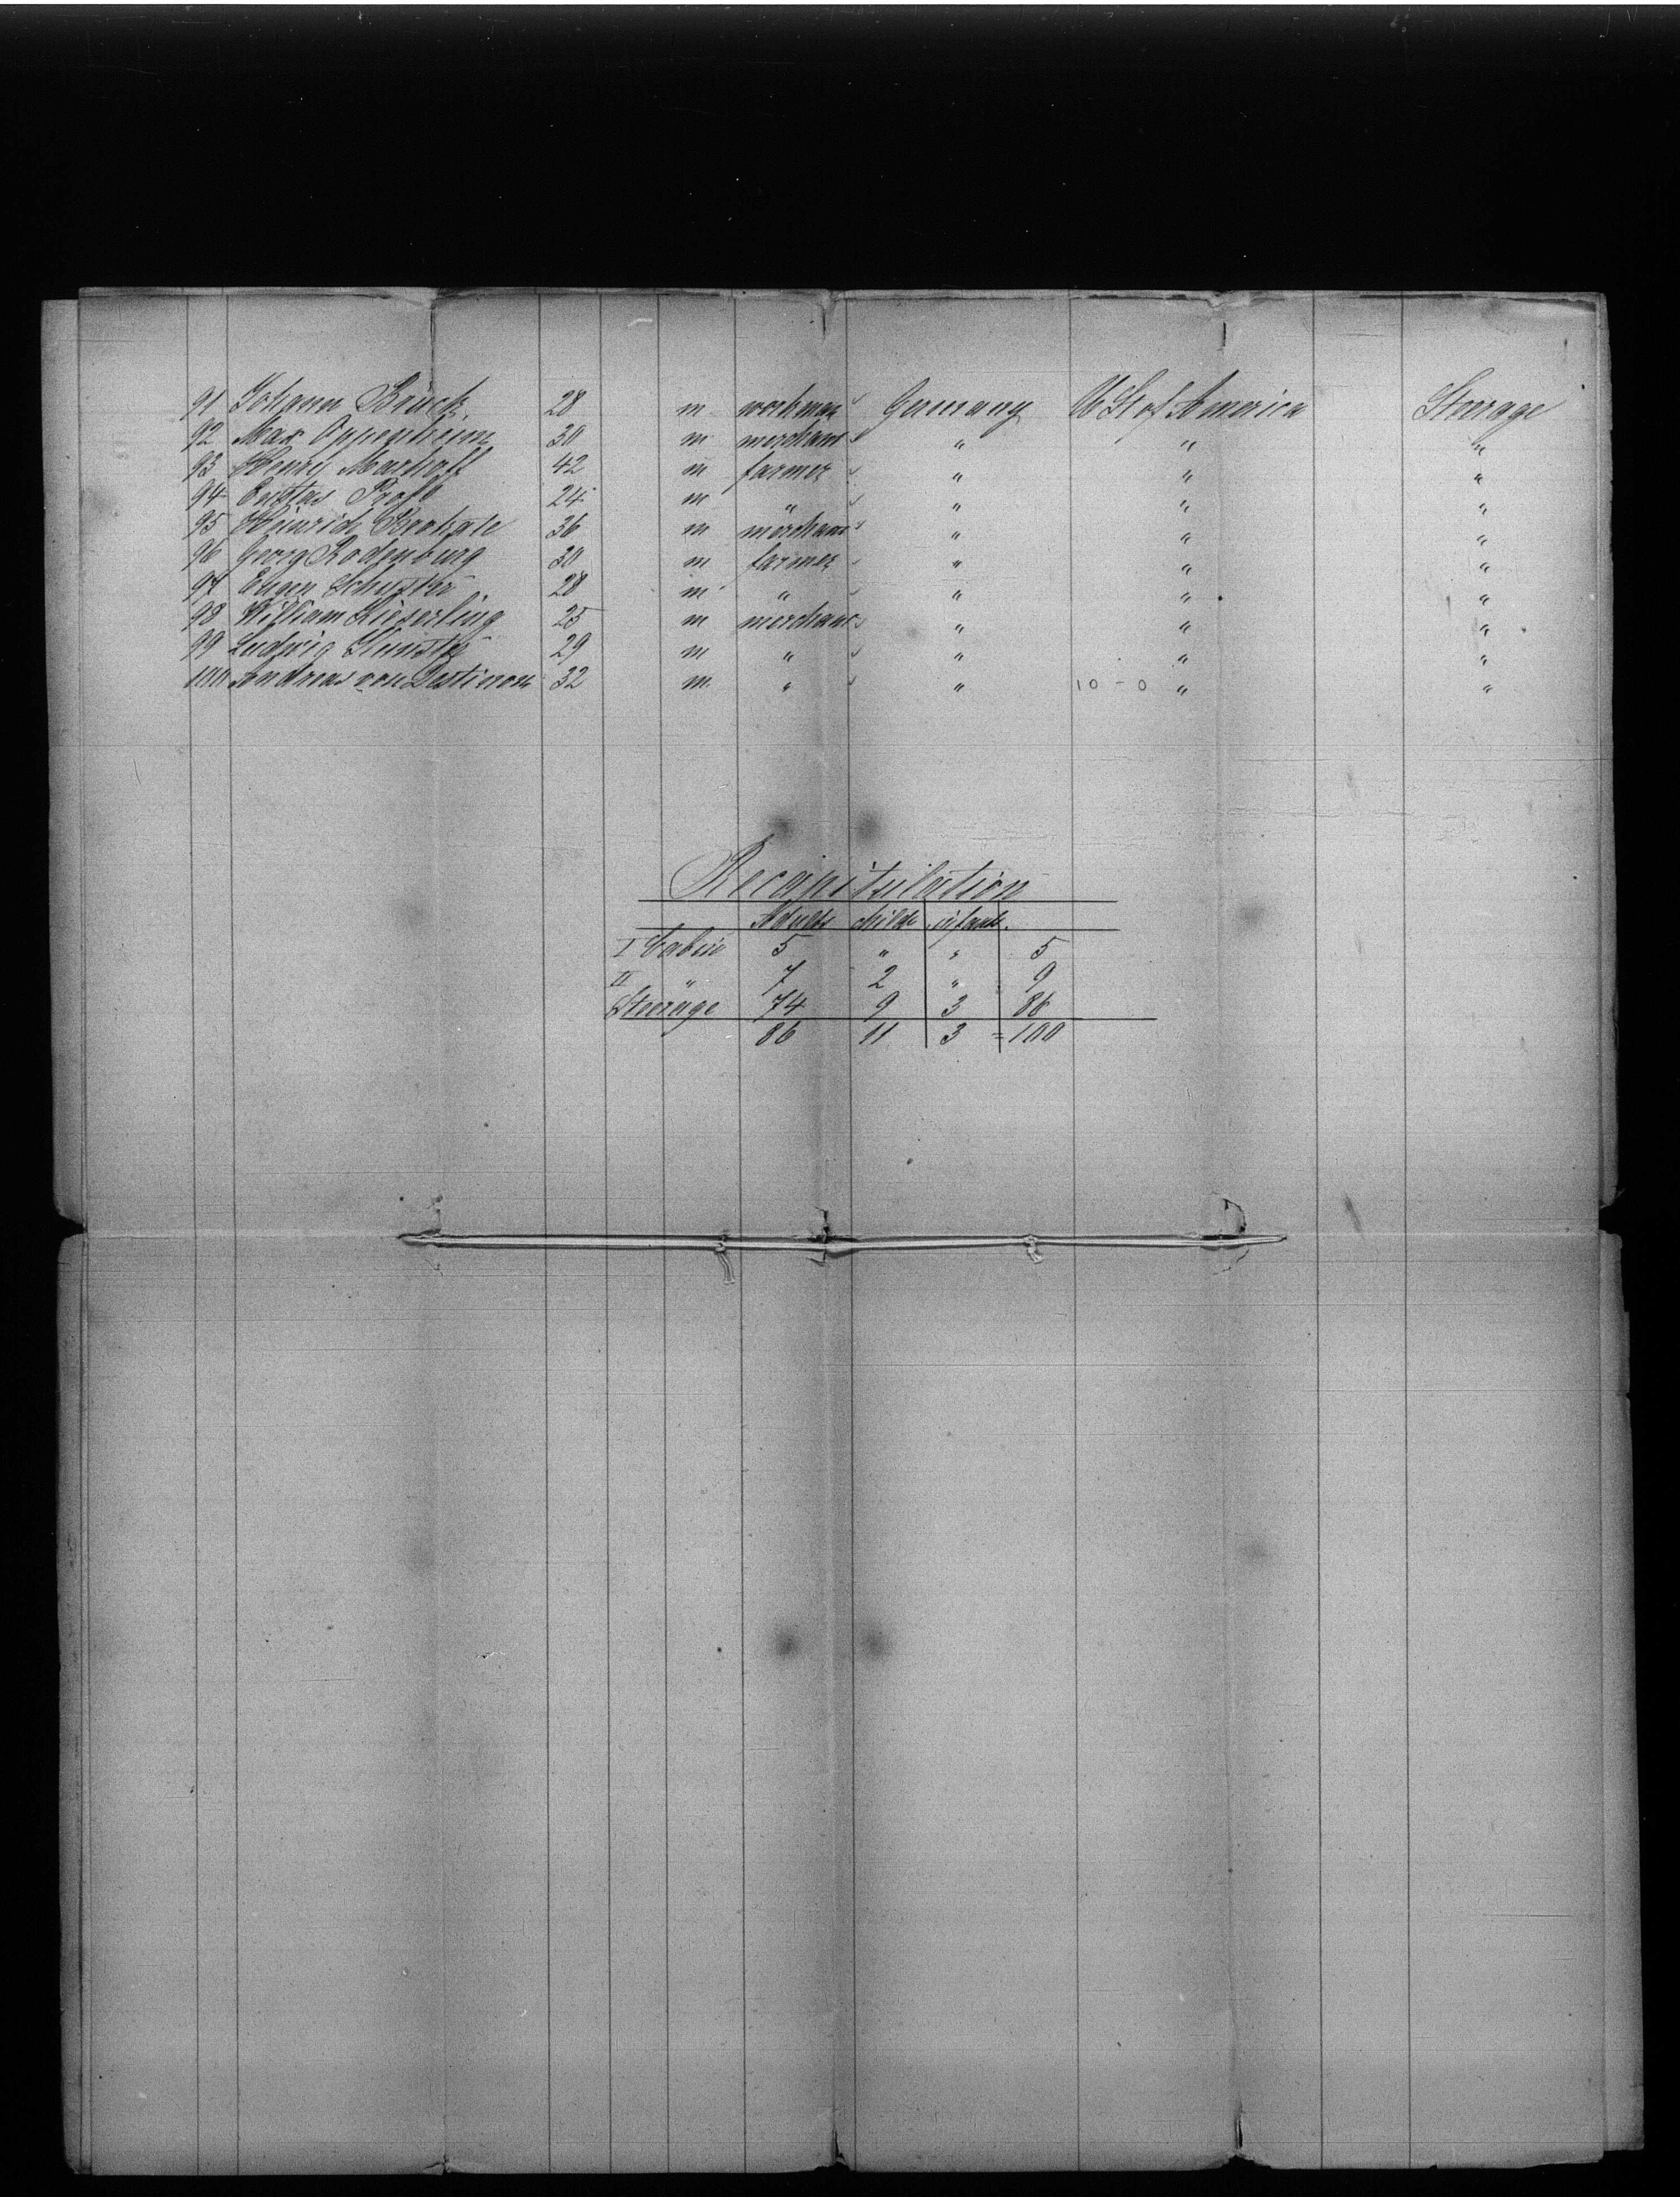 91 Johann Brück 28 m workman Germany U St of America Steerage
92 Max Oppenheim 30 m merchant " " "
93 Henry Marhoff 42 m farmer " " "
94 24 m " " " "
95 Heinrich 36 m merchant " " "
96 Georg Rodenburg 30 m farmer " " "
97 Eugen Schuster 28 m " " " "
98 William Kieserling 25 m merchant " " "
99 Ludwig 29 m " " " "
100 Andreas von 32 m " " 10 - 0 " "
Recapitulation
Adults Childr infants.
I Cabin 5 " " 5
II " 7 2 " 9
Steerage 74 9 3 86
86 11 3 = 100